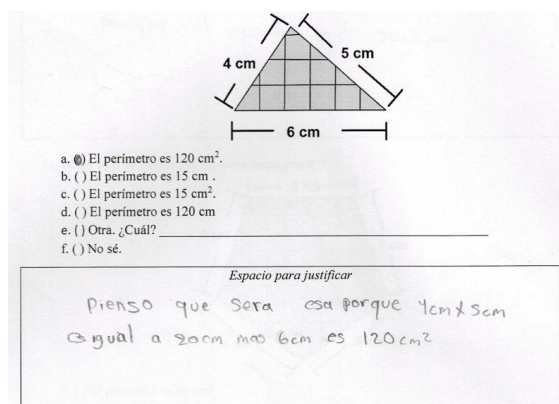 4 cm
5 cm
6 cm
a. ( ) El perímetro es 120 cm².
b. ( ) El perímetro es 15 cm .
c. ( ) El perímetro es 15 cm².
d. ( ) El perímetro es 120 cm
e. ( ) Otra. ¿Cuál?
f. ( ) No sé.
Espacio para justificar
Pienso que sera esa porque 4cm x 5cm
es igual a 20cm mas 6cm es 120cm²